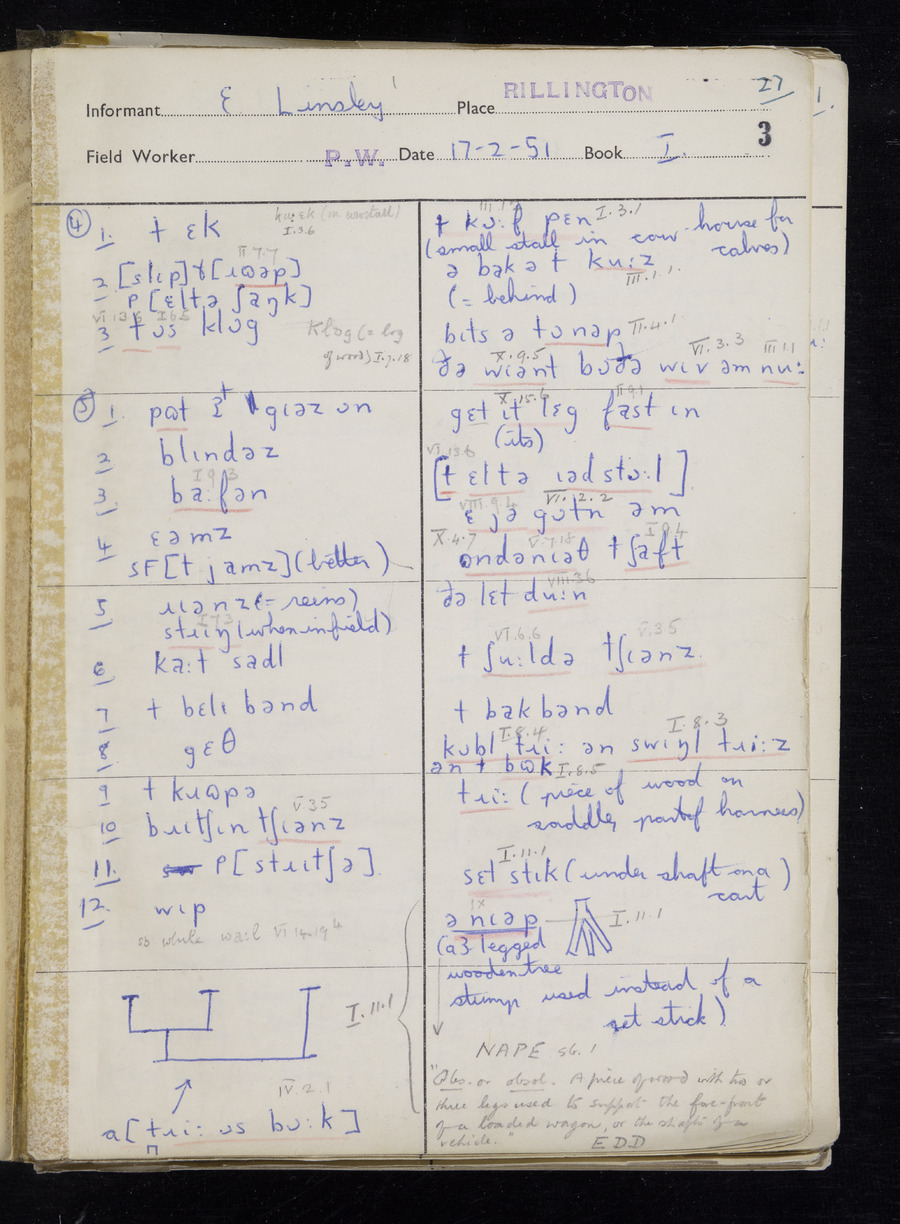 27
Informant E Linsley Place RILLINGTON
3
Field Worker P.W. Date 17-2-51 Book I.
4
1. t ɛk
kuː ɛk (in cowstall)
I.3.6
II.7.7
2 [slɪp] ɣ [ɹɷəp]
P [ɛltə ʃaŋk]
VI.13.6 I.6.5
3 t ʊs klʊg
klɔg (= log
of wood) I.7.18
5 1. pɷt t gɪəz ɒn
2 blɪndəz
I.9.3
3. baːfən
4 ɛəmz
SF [t jamz] (better)
5 ɹɪənz (= reins)
I.7.3
stɹɪŋ (when in field)
6 kaːt sadl
7 t bɛlɪ band
8 gɛθ
9 t kɹɷpə
V.35
10 bɹɪtʃɪn tʃɪənz
11. P [stɹɪtʃə]
12. wɪp
I.11.1
IV.2.1
a [tɹiː ʊs bʊːk]
t kɔːf pɛn I.3.1
(small stall in cow-house for
calves)
ə bak ə t kuːz
III.1.1.
(= behind)
bɪts ə tɒnəp II.4.1
X.9.5 VI.3.3 III.1.1
ðə wɪənt bʊðə wɪv əm nuː
X.15.6 II.9.1
gɛt ɪt lɛg fast ɪn
(its)
VI.13.6
[t ɛltə ɪədstɔːl]
VIII.9.4 VI.2.2
ɛ jə gɒtn əm
X.4.7 V.7.18 I.9.4
ɒndənɪəθ tʃaft
VIII.3.6
ðə lɛt duːn
VI.6.6 V.35
t ʃuːldə tʃɪənz
t bakband
I.8.4 I.8.3
kʊbl tɹiː ən swɪŋl tɹiːz
ən t bɷk I.8.5
tɹiː (piece of wood on
saddle, part of harness)
I.11.1
sɛt stɪk (under shaft on a
cart)
IX
ə nɪəp I.11.1
(a 3 legged
wooden tree
stump used instead of a
set stick)
NAPE sb. 1
"Obs. or obsol. A piece of wood with two or
three legs used to support the fore-front
of a loaded wagon, or the shafts of a
vehicle."
EDD